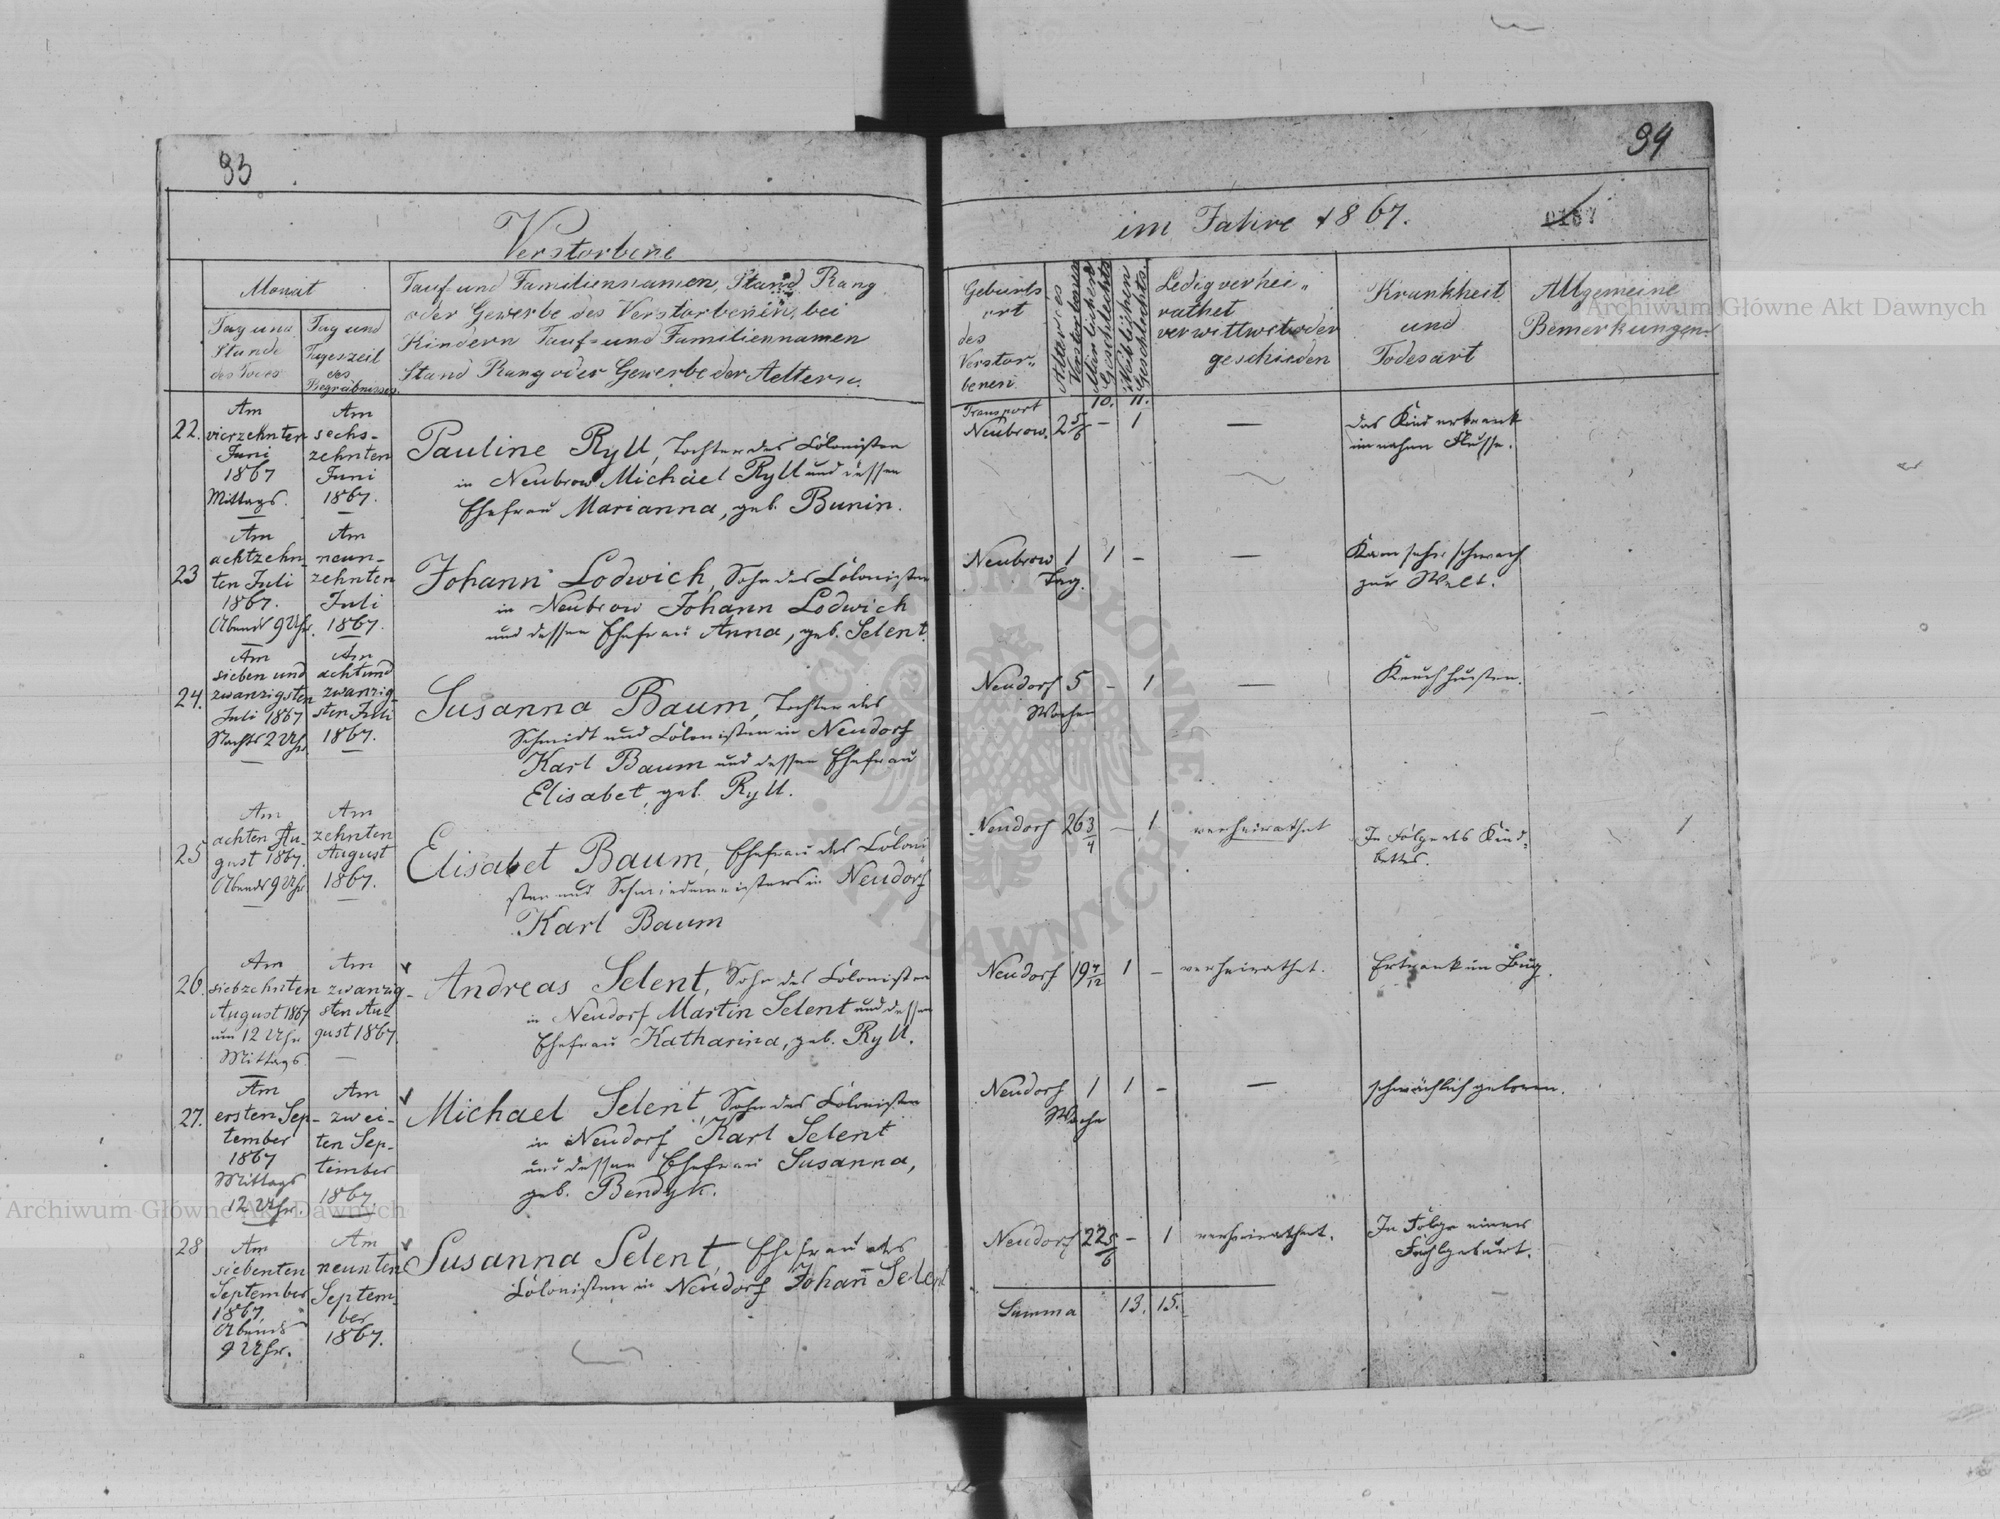 93
94
Verstorbene
im Jahre 1867.
0157
Monat
Tag und
Stunde
des Todes
Tag und
Tageszeit
des
Begräbnisses.
Tauf- und Familiennamen, Stand, Rang
oder Gewerbe des Verstorbenen, bei
Kindern Tauf- und Familiennamen
Stand Rang oder Gewerbe der Aeltern.
Geburts
ort
des
Verstor-
benen
Alter des
Verstorbenen
Männlichen
Geschlechts
Weiblichen
Geschlechts.
Ledig verhei-
rathet
verwittwet oder
geschieden
Krankheit
und
Todesart
Allgemeine
Bemerkungen.
Transport
10. 11.
22.
Am
vierzehnten
Juni
1867
Mittags.
Am
sechs-
zehnten
Juni
1867.
Pauline Ryll, Tochter des Colonisten
in Neubrow Michael Ryll und dessen
Ehefrau Marianna, geb. Bunin.
Neubrow. 2 5/6 – 1
—
das Kind ertrank
im nahen Flusse.
23
Am
achtzehn-
ten Juli
1867.
Abends 9 Uhr.
Am
neun-
zehnten
Juli
1867.
Johann Lodwich, Sohn des Colonisten
in Neubrow Johann Lodwich
und dessen Ehefrau Anna, geb. Selent.
Neubrow 1 1 –
Tag.
—
Kam sehr schwach
zur Welt.
24.
Am
sieben und
zwanzigsten
Juli 1867
Nachts 2 Uhr
Am
achtund
zwanzig-
sten Juli
1867.
Susanna Baum, Tochter des
Schmidt und Colonisten in Neudorf
Karl Baum und dessen Ehefrau
Elisabet, geb. Ryll.
Neudorf 5 – 1
Wochen
—
Keuchhusten.
25
Am
achten Au-
gust 1867.
Abends 9 Uhr
Am
zehnten
August
1867.
Elisabet Baum, Ehefrau des Coloni
sten und Schmiedemeisters in Neudorf
Karl Baum
Neudorf 26 3/4 – 1
verheirathet
In Folge des Kind-
bettes.
26.
Am
siebzehnten
August 1867
um 12 Uhr
Mittags
Am
zwanzig-
sten Au-
gust 1867.
Andreas Selent, Sohn des Colonisten
in Neudorf Martin Selent und dessen
Ehefrau Katharina, geb. Ryll.
Neudorf 19 4/12 1 –
verheirathet.
Ertrank im Bug.
27.
Am
ersten Sep-
tember
1867
Mittags
12 Uhr.
Am
zwei-
ten Sep-
tember
1867
Michael Selent, Sohn des Colonisten
in Neudorf Karl Selent
und dessen Ehefrau Susanna,
geb. Bendyk.
Neudorf 1 1 –
Woche
—
schwächlich geboren.
28
Am
siebenten
September
1867,
Abends
9 Uhr.
Am
neunten
Septem-
ber
1867.
Susanna Selent, Ehefrau des
Colonisten in Neudorf Johann Selent
Neudorf 22 5/6 – 1
verheirathet.
In Folge einer
Fehlgeburt.
Summa 13. 15.
Archiwum Główne Akt Dawnych
Archiwum Główne Akt Dawnych
ARCHIWUM GŁÓWNE
AKT DAWNYCH